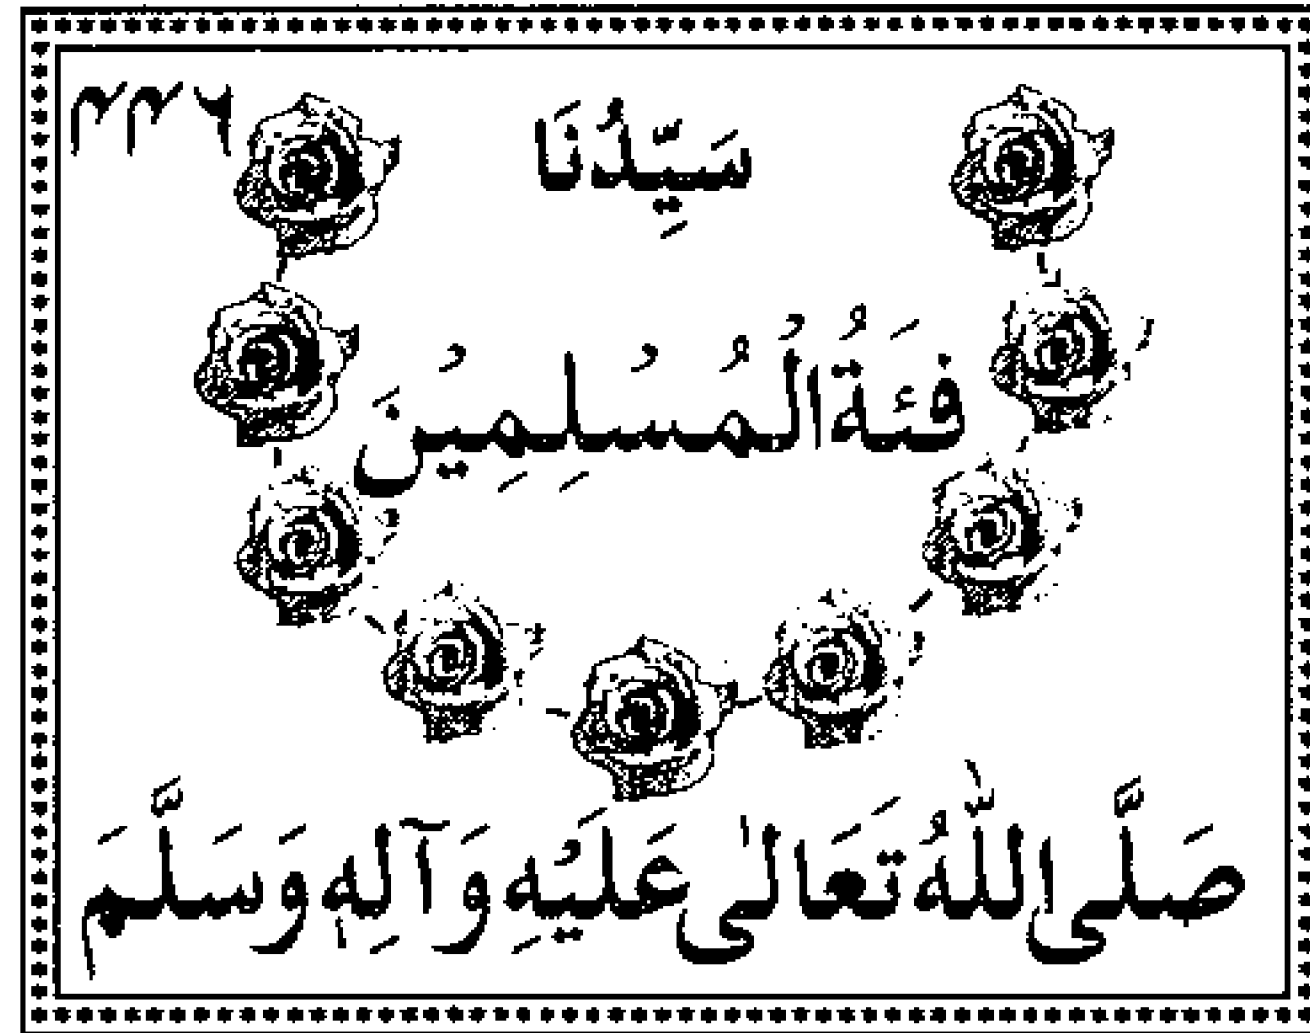 ٢٢٦
سَيِّدُنَا
فئَةُ الْمُسْلِمِيْنَ
صَلَّى اللّٰهُ تَعَالٰى عَلَيْهِ وَآلِهٖ وَسَلَّمَ